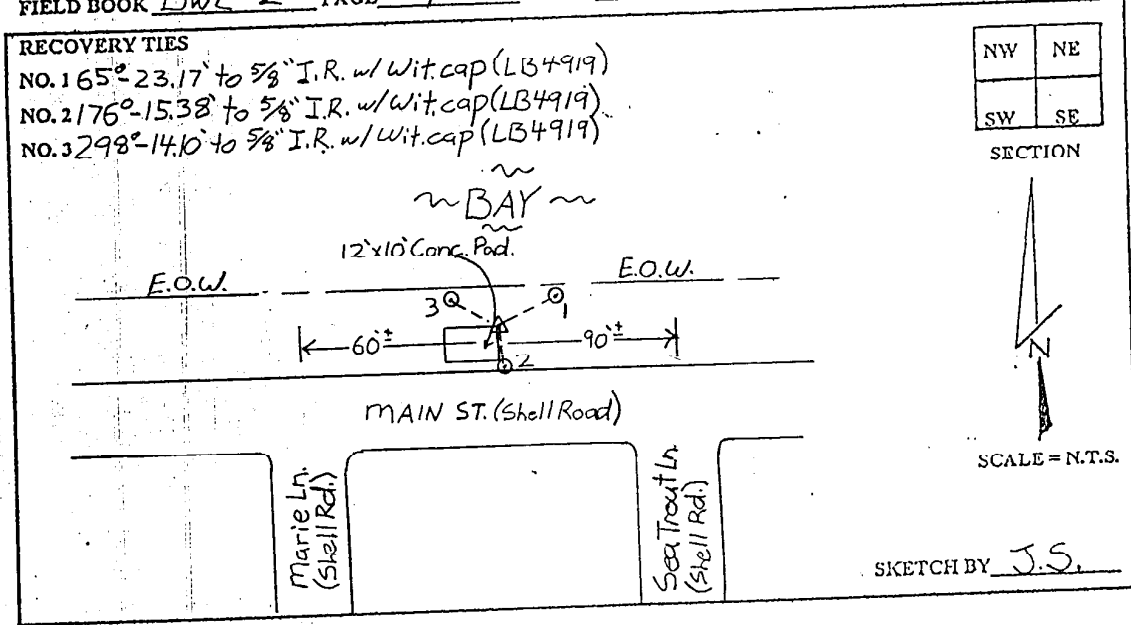 FIELD BOOK PAGE
RECOVERY TIES
NO. 1 65°-23.17' to 5/8" I.R. w/ Wit.cap (LB4919)
NO. 2 176°-15.38' to 5/8" I.R. w/ Wit.cap (LB4919)
NO. 3 298°-14.10' to 5/8" I.R. w/ Wit.cap (LB4919)
NW NE
SW SE
SECTION
~ BAY ~
12'x10' Conc. Pad.
E.O.W. E.O.W.
3 1
60'± 90'±
2
N
MAIN ST. (Shell Road)
SCALE = N.T.S.
Marie Ln.
(Shell Rd.)
Sea Trout Ln.
(Shell Rd.)
SKETCH BY J.S.